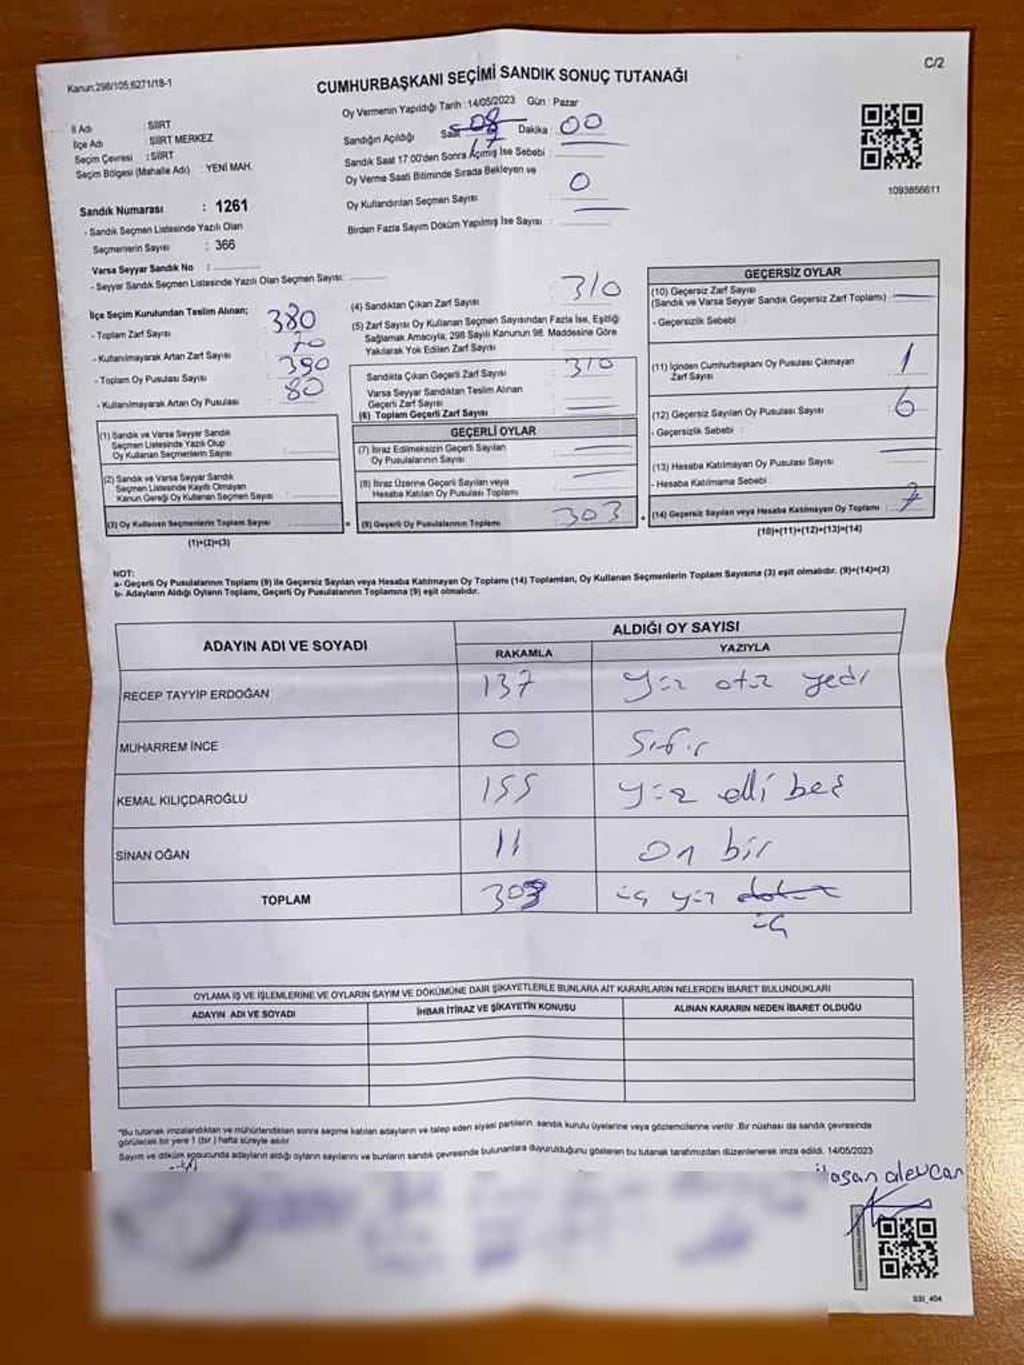 Kanun:298/105;6271/18-1
C/2
CUMHURBAŞKANI SEÇİMİ SANDIK SONUÇ TUTANAĞI
İl Adı : SİİRT
İlçe Adı : SİİRT MERKEZ
Seçim Çevresi : SİİRT
Seçim Bölgesi (Mahalle Adı) : YENİ MAH.
Sandık Numarası : 1261
- Sandık Seçmen Listesinde Yazılı Olan
Seçmenlerin Sayısı : 366
Varsa Seyyar Sandık No :
- Seyyar Sandık Seçmen Listesinde Yazılı Olan Seçmen Sayısı:
Oy Vermenin Yapıldığı Tarih :14/05/2023 Gün : Pazar
Sandığın Açıldığı Saat 08 17 Dakika : 00
Sandık Saat 17:00'den Sonra Açılmış İse Sebebi :
Oy Verme Saati Bitiminde Sırada Bekleyen ve
Oy Kullandırılan Seçmen Sayısı : 0
Birden Fazla Sayım Döküm Yapılmış İse Sayısı :
1093856611
İlçe Seçim Kurulundan Teslim Alınan;
- Toplam Zarf Sayısı : 380
- Kullanılmayarak Artan Zarf Sayısı : 70
- Toplam Oy Pusulası Sayısı : 390
- Kullanılmayarak Artan Oy Pusulası : 80
(1) Sandık ve Varsa Seyyar Sandık
Seçmen Listesinde Yazılı Olup
Oy Kullanan Seçmenlerin Sayısı :
(2) Sandık ve Varsa Seyyar Sandık
Seçmen Listesinde Kayıtlı Olmayan
Kanun Gereği Oy Kullanan Seçmen Sayısı :
(3) Oy Kullanan Seçmenlerin Toplam Sayısı :
(1)+(2)=(3)
(4) Sandıktan Çıkan Zarf Sayısı : 310
(5) Zarf Sayısı Oy Kullanan Seçmen Sayısından Fazla İse, Eşitliği
Sağlamak Amacıyla, 298 Sayılı Kanunun 98. Maddesine Göre
Yakılarak Yok Edilen Zarf Sayısı :
Sandıkta Çıkan Geçerli Zarf Sayısı : 310
Varsa Seyyar Sandıktan Teslim Alınan
Geçerli Zarf Sayısı :
(6) Toplam Geçerli Zarf Sayısı :
GEÇERLİ OYLAR
(7) İtiraz Edilmeksizin Geçerli Sayılan
Oy Pusulalarının Sayısı :
(8) İtiraz Üzerine Geçerli Sayılan veya
Hesaba Katılan Oy Pusulası Toplamı :
= (9) Geçerli Oy Pusulalarının Toplamı : 303
GEÇERSİZ OYLAR
(10) Geçersiz Zarf Sayısı
(Sandık ve Varsa Seyyar Sandık Geçersiz Zarf Toplamı) :
- Geçersizlik Sebebi :
(11) İçinden Cumhurbaşkanı Oy Pusulası Çıkmayan
Zarf Sayısı : 1
(12) Geçersiz Sayılan Oy Pusulası Sayısı : 6
- Geçersizlik Sebebi :
(13) Hesaba Katılmayan Oy Pusulası Sayısı :
- Hesaba Katılmama Sebebi :
+ (14) Geçersiz Sayılan veya Hesaba Katılmayan Oy Toplamı : 7
(10)+(11)+(12)+(13)=(14)
NOT:
a- Geçerli Oy Pusulalarının Toplamı (9) ile Geçersiz Sayılan veya Hesaba Katılmayan Oy Toplamı (14) Toplamları, Oy Kullanan Seçmenlerin Toplam Sayısına (3) eşit olmalıdır. (9)+(14)=(3)
b- Adayların Aldığı Oyların Toplamı, Geçerli Oy Pusulalarının Toplamına (9) eşit olmalıdır.
ADAYIN ADI VE SOYADI
ALDIĞI OY SAYISI
RAKAMLA YAZIYLA
RECEP TAYYİP ERDOĞAN 137 yüz otuz yedi
MUHARREM İNCE 0 Sıfır
KEMAL KILIÇDAROĞLU 155 yüz elli beş
SİNAN OĞAN 11 on bir
TOPLAM 303 üç yüz dokuz
üç
OYLAMA İŞ VE İŞLEMLERİNE VE OYLARIN SAYIM VE DÖKÜMÜNE DAİR ŞİKAYETLERLE BUNLARA AİT KARARLARIN NELERDEN İBARET BULUNDUKLARI
ADAYIN ADI VE SOYADI İHBAR İTİRAZ VE ŞİKAYETİN KONUSU ALINAN KARARIN NEDEN İBARET OLDUĞU
*Bu tutanak imzalandıktan ve mühürlendikten sonra seçime katılan adayların ve talep eden siyasi partilerin sandık kurulu üyelerine veya gözlemcilerine verilir. Bir nüshası da sandık çevresinde
görülecek bir yere 1 (bir) hafta süreyle asılır.
Sayım ve döküm sonucunda adayların aldığı oyların sayılarını ve bunların sandık çevresinde bulunanlara duyurulduğunu gösteren bu tutanak tarafımızdan düzenlenerek imza edildi. 14/05/2023
SSI_404